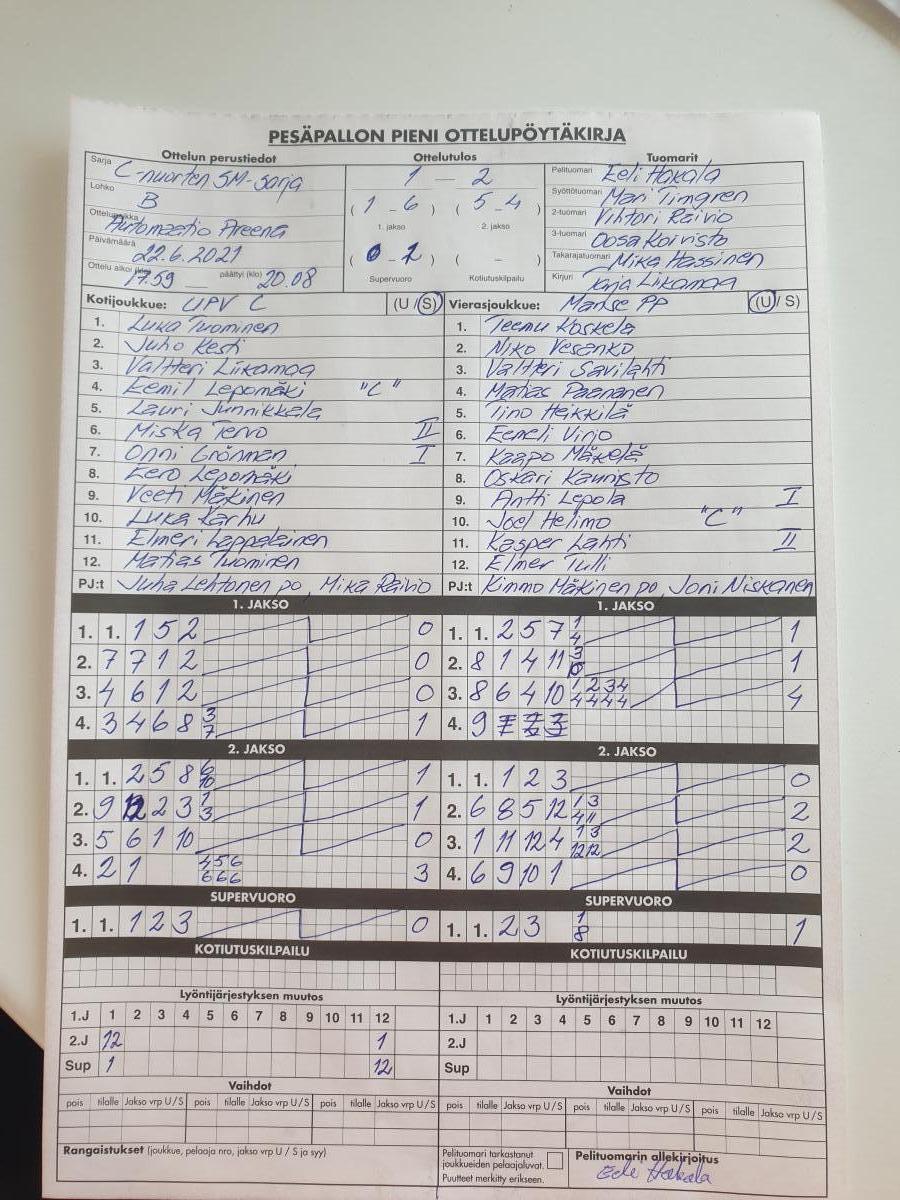 PESÄPALLON PIENI OTTELUPÖYTÄKIRJA
Ottelun perustiedot Ottelutulos Tuomarit
Sarja C-nuorten SM-sarja
Lohko B
Ottelupaikka Automaatio Areena
Päivämäärä 22.6.2021
Ottelu alkoi (klo) 17.59 päättyi (klo) 20.08
1 — 2
( 1 - 6 ) ( 5 - 4 )
1. jakso 2. jakso
( 0 - 1 ) ( - )
Supervuoro Kotiutuskilpailu
Pelituomari Eeli Hakala
Syöttötuomari Mari Timgren
2-tuomari Vihtori Raivio
3-tuomari Oosa Koivisto
Takarajatuomari Mika Hassinen
Kirjuri Tarja Liikamaa
Kotijoukkue: UPV C (U / S) Vierasjoukkue: Manse PP (U / S)
1. Luka Tuominen 1. Teemu Koskela
2. Juho Kesti 2. Niko Vesanko
3. Valtteri Liikamaa 3. Valtteri Savilahti
4. Eemil Lepomäki "C" 4. Matias Paananen
5. Lauri Junnikkala 5. Tino Heikkilä
6. Miska Tervo II 6. Eemeli Virjo
7. Onni Grönman I 7. Kaapo Mäkelä
8. Eero Lepomäki 8. Oskari Kaunisto
9. Veeti Mäkinen 9. Antti Lepola I
10. Luka Karhu 10. Joel Helimo "C"
11. Elmeri Lappalainen 11. Kasper Lahti II
12. Matias Tuominen 12. Elmer Tulli
PJ:t Juha Lehtonen po, Mika Raivio PJ:t Kimmo Mäkinen po, Joni Niskanen
1. JAKSO 1. JAKSO
1. 1. 1 5 2 0 1. 1. 2 5 7 1/4 1
2. 7 7 1 2 0 2. 8 1 4 11 3/10 1
3. 4 6 1 2 0 3. 8 6 4 10 1/4 2/4 3/4 4/4 4
4. 3 4 6 8 3/7 1 4. 9
2. JAKSO 2. JAKSO
1. 1. 2 5 8 6/10 1 1. 1. 1 2 3 0
2. 9 12 2 3 1/3 1 2. 6 8 5 12 1/4 3/11 2
3. 5 6 1 10 0 3. 1 11 12 4 1/12 3/12 2
4. 2 1 4/6 5/6 6/6 3 4. 6 9 10 1 0
SUPERVUORO SUPERVUORO
1. 1. 1 2 3 0 1. 1. 2 3 1/8 1
KOTIUTUSKILPAILU KOTIUTUSKILPAILU
Lyöntijärjestyksen muutos Lyöntijärjestyksen muutos
1.J 1 2 3 4 5 6 7 8 9 10 11 12 1.J 1 2 3 4 5 6 7 8 9 10 11 12
2.J 12 1 2.J
Sup 1 12 Sup
Vaihdot Vaihdot
pois tilalle Jakso vrp U / S pois tilalle Jakso vrp U / S pois tilalle Jakso vrp U / S pois tilalle Jakso vrp U / S pois tilalle Jakso vrp U / S pois tilalle Jakso vrp U / S
Rangaistukset (joukkue, pelaaja nro, jakso vrp U / S ja syy)
Pelituomari tarkastanut
joukkueiden pelaajaluvat.
Puutteet merkitty erikseen.
Pelituomarin allekirjoitus
Eeli Hakala